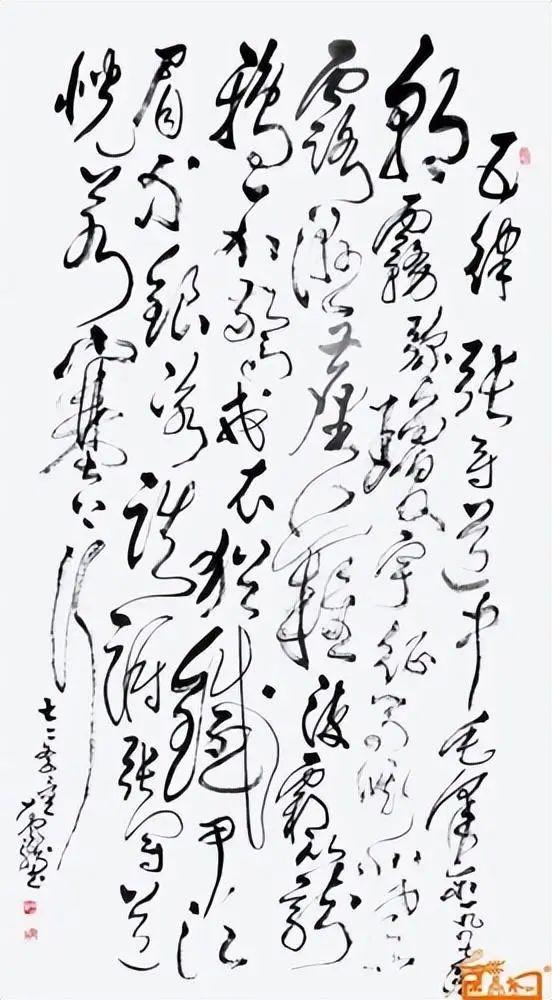 五律 张冠道中 毛泽东一九四七年
朝雾弥琼宇征马嘶北风
露湿尘难染霜笼
鸦不惊戎衣犹铁甲须
眉等银冰踟蹰张冠道
恍若塞上行
书